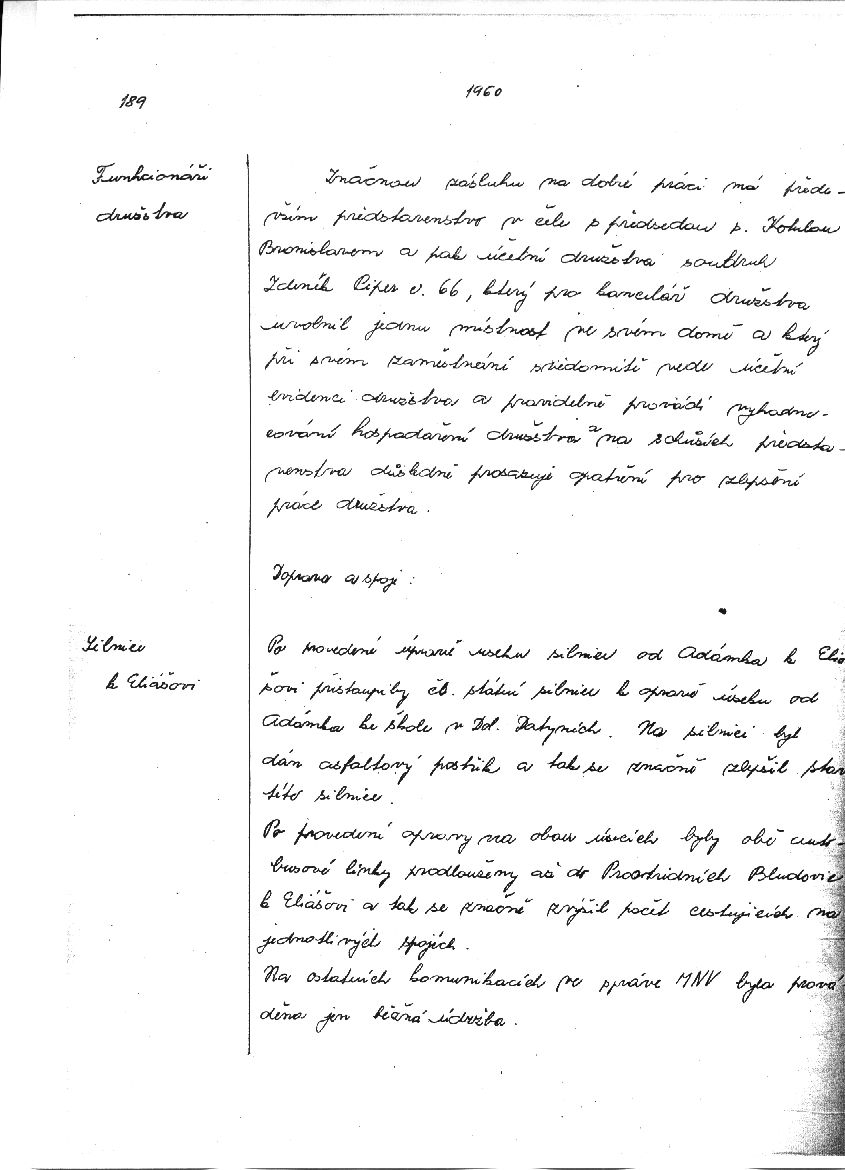 189
1960
Funkcionáři
družstva
Značnou zásluhu na dobré práci má přede-
vším představenstvo v čele s předsedou s. Kotulou
Bronislavem a pak účetní družstva soudruh
Zdeněk Ciper č. 66, který pro kancelář družstva
uvolnil jednu místnost ve svém domě a který
při svém zaměstnání svědomitě vede účetní
evidenci družstva a pravidelně provádí vyhodno-
cování hospodaření družstva a na schůzích předsta-
venstva důsledně prosazuje opatření pro zlepšení
práce družstva.
Doprava a spoje:
Silnice
k Eliášovi
Po provedené úpravě úseku silnice od Adámka k Eliá
šovi přistoupily čs. státní silnice k opravě úseku od
Adámka ke škole v Dol. Datyních. Na silnici byl
dán asfaltový postřik a tak se značně zlepšil stav
této silnice.
Po provedení opravy na obou úsecích byly obě auto-
busové linky prodlouženy až do Prostředních Bludovic
k Eliášovi a tak se značně zvýšil počet cestujících na
jednotlivých spojích.
Na ostatních komunikacích ve správe MNV byla prová
děna jen běžná údržba.